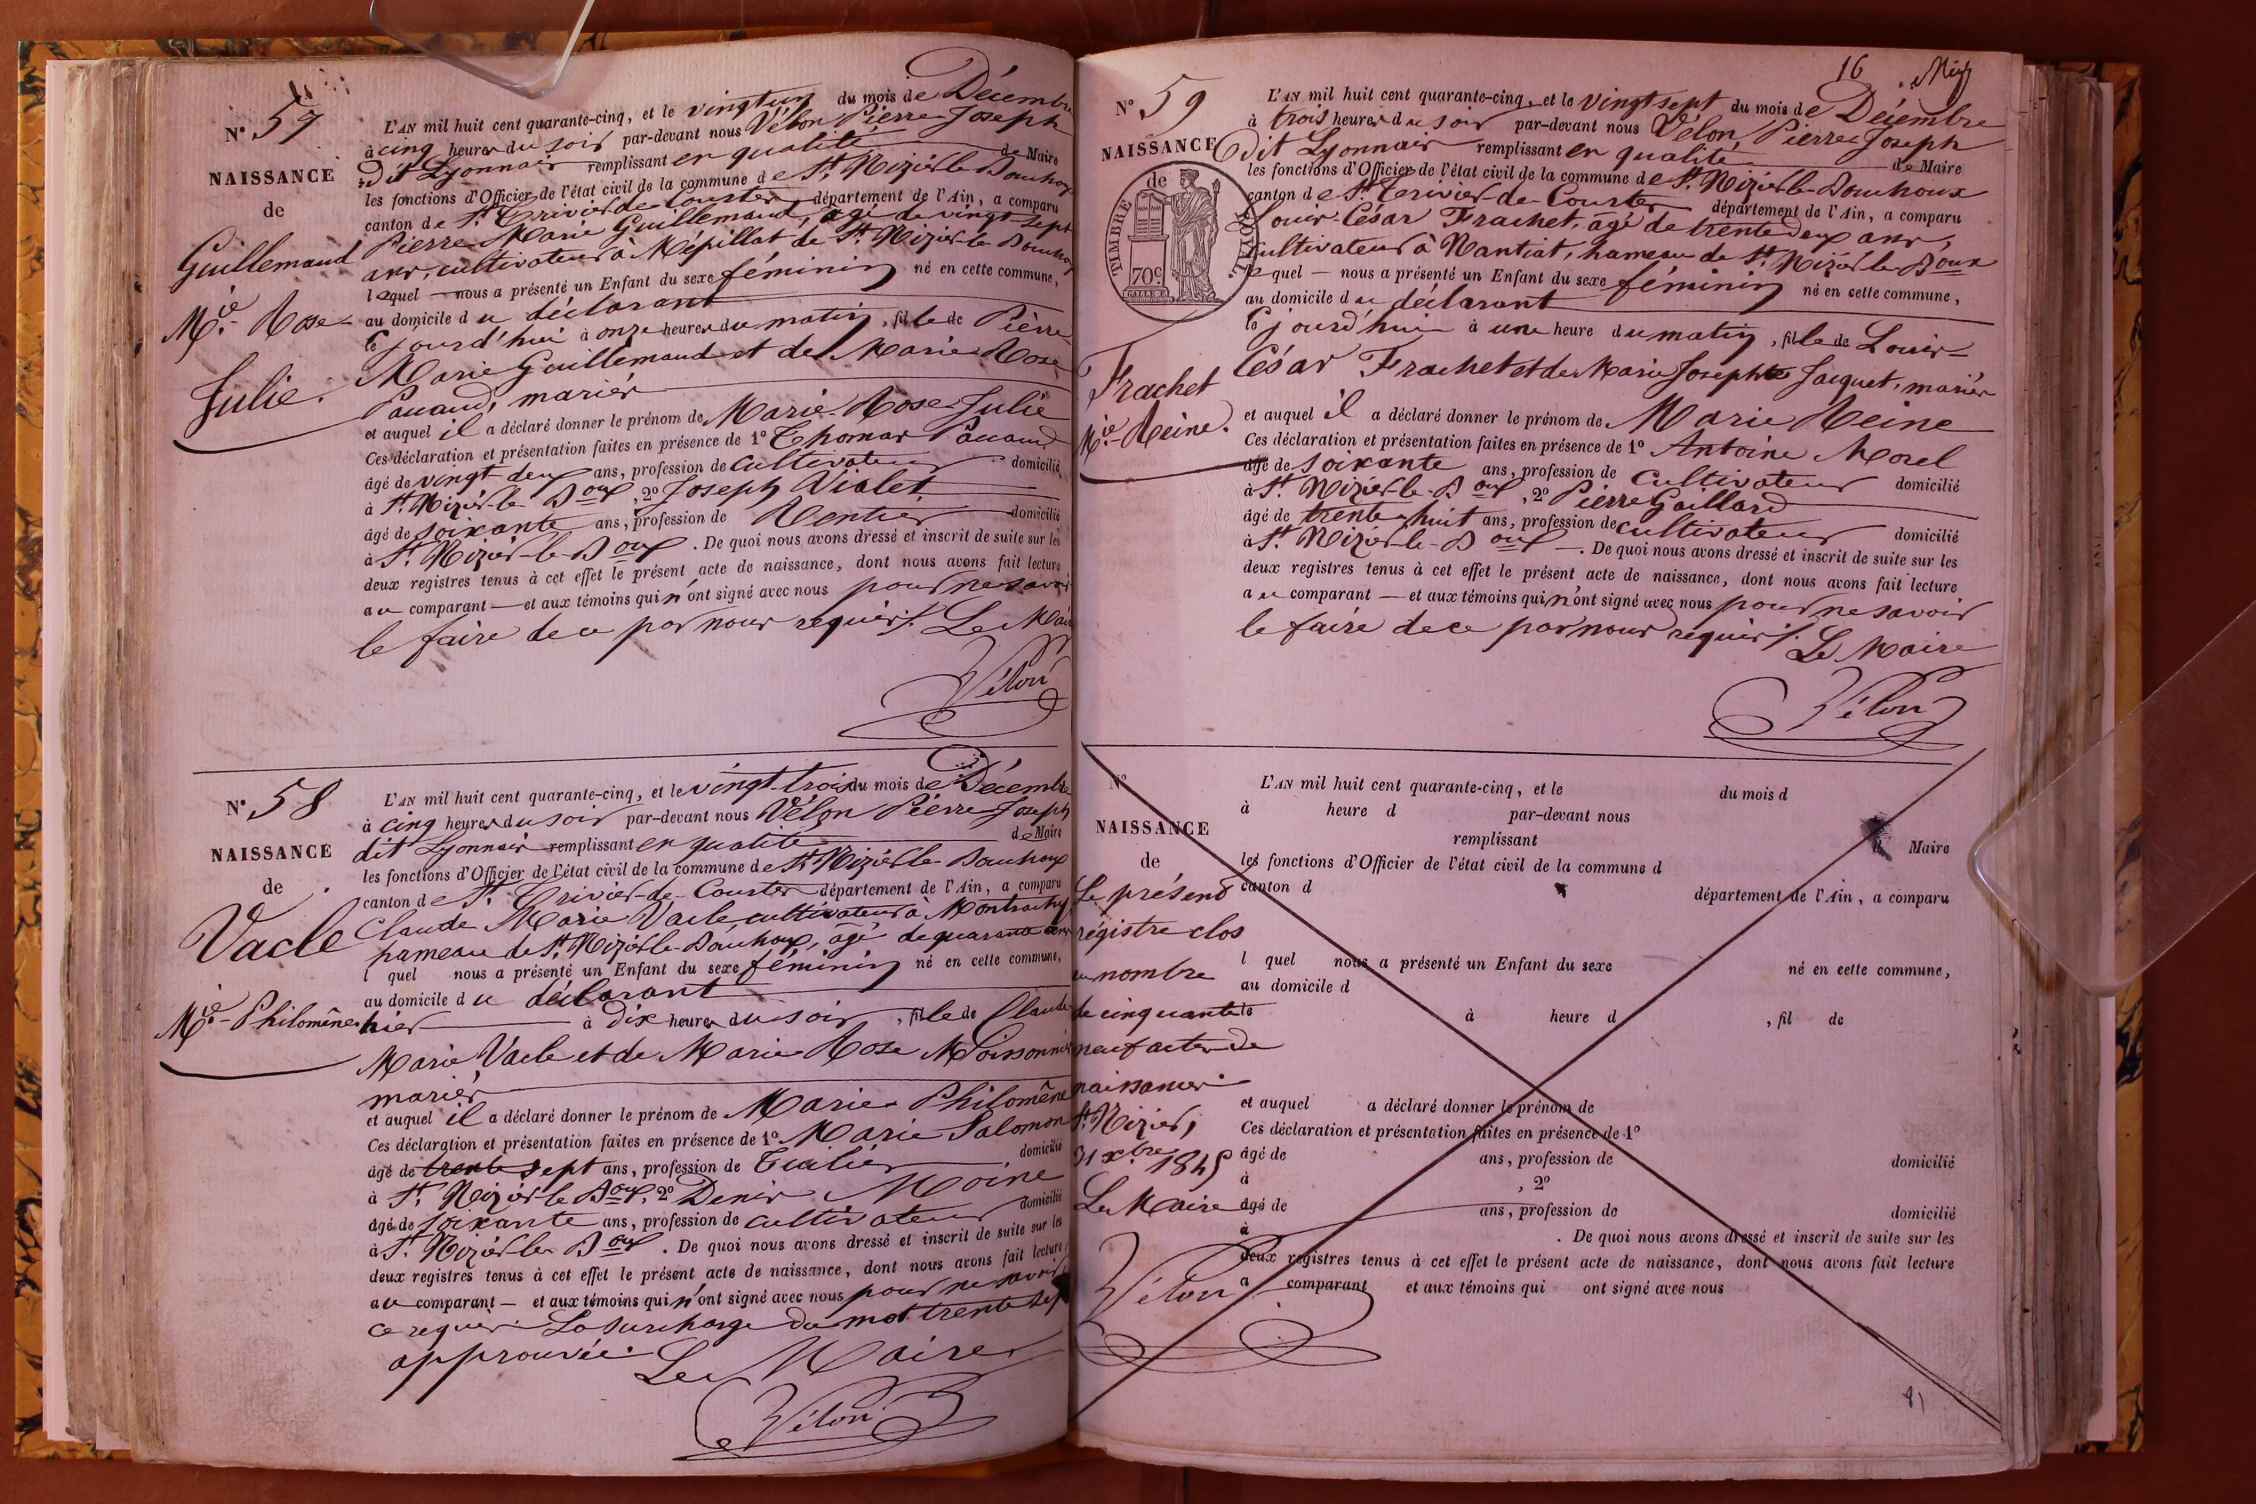 N° 57
NAISSANCE
de
Guillemaud
Mie. Rose
Julie.
L'AN mil huit cent quarante-cinq, et le vingtun du mois de Décembre
à cinq heures du soir par-devant nous Vélon Pierre Joseph
dit Lyonnais remplissant en qualité de Maire
les fonctions d'Officier de l'état civil de la commune de St. Nizier le Bouchoux
canton de St. Trivier de Courtes département de l'Ain, a comparu
Pierre Marie Guillemaud, âgé de vingt sept
ans, cultivateur à Mépillat de St. Nizier le Bouchoux
lequel nous a présenté un Enfant du sexe féminin né en cette commune,
au domicile du déclarant
ce jourd'hui à onze heures du matin, fille de Pierre
Marie Guillemaud et de Marie Rose
Pauand, mariés
et auquel il a déclaré donner le prénom de Marie Rose Julie
Ces déclaration et présentation faites en présence de 1° Thomas Pauand
âgé de vingt deux ans, profession de cultivateur domicilié
à St. Nizier le Boux, 2° Joseph Violet
âgé de soixante ans, profession de Rentier domicilié
à St. Nizier-le-Boux. De quoi nous avons dressé et inscrit de suite sur les
deux registres tenus à cet effet le présent acte de naissance, dont nous avons fait lecture
au comparant et aux témoins qui n'ont signé avec nous pour ne savoir
le faire de ce par nous requis. Le Maire
Vélon
N° 58
NAISSANCE
de
Vacle
Mie. Philomène
L'AN mil huit cent quarante-cinq, et le vingt-trois du mois de Décembre
à cinq heures du soir par-devant nous Vélon Pierre Joseph
dit Lyonnais remplissant en qualité de Maire
les fonctions d'Officier de l'état civil de la commune de St. Nizier le Bouchoux
canton de St. Trivier-de-Courtes département de l'Ain, a comparu
Claude Marie Vacle cultivateur à
hameau de St. Nizier le Bouchoux, âgé de quarante ans
l quel nous a présenté un Enfant du sexe féminin né en cette commune,
au domicile du déclarant
hier à dix heures du soir, fille de Claude
Marie Vacle et de Marie Rose
mariés
et auquel il a déclaré donner le prénom de Marie Philomène
Ces déclaration et présentation faites en présence de 1° Marie Salomon
âgé de trente sept ans, profession de Tuilier domicilié
à St. Nizier le Boux, 2° Denis Moine
âgé de soixante ans, profession de cultivateur domicilié
à St. Nizier le Boux. De quoi nous avons dressé et inscrit de suite sur les
deux registres tenus à cet effet le présent acte de naissance, dont nous avons fait lecture
au comparant et aux témoins qui n'ont signé avec nous pour ne savoir
ce requis. La surcharge du mot trente sept
approuvée. Le Maire
Vélon
16
N° 59
NAISSANCE
de
TIMBRE ROYAL
70 c.
Frachet
Mie. Reine.
L'AN mil huit cent quarante-cinq, et le vingt sept du mois de Décembre
à trois heures du soir par-devant nous Vélon, Pierre Joseph
dit Lyonnais remplissant en qualité de Maire
les fonctions d'Officier de l'état civil de la commune de St. Nizier le Bouchoux
canton de St. Trivier-de-Courtes département de l'Ain, a comparu
Louis César Frachet, âgé de trente deux ans,
cultivateur à Nantiat, hameau de St. Nizier le Boux
lequel nous a présenté un Enfant du sexe féminin né en cette commune,
au domicile du déclarant
ce jourd'hui à une heure du matin, fille de Louis
César Frachet et de Marie Josephte Jacquet, mariés
et auquel il a déclaré donner le prénom de Marie Reine
Ces déclaration et présentation faites en présence de 1° Antoine Morel
âgé de soixante ans, profession de cultivateur domicilié
à St. Nizier-le-Boux, 2° Pierre Gaillard
âgé de trente-huit ans, profession de cultivateur domicilié
à St. Nizier-le-Boux. De quoi nous avons dressé et inscrit de suite sur les
deux registres tenus à cet effet le présent acte de naissance, dont nous avons fait lecture
au comparant et aux témoins qui n'ont signé avec nous pour ne savoir
le faire de ce par nous requis. Le Maire
Vélon
N°
NAISSANCE
de
Le présent
régistre clos
au nombre
de cinquante
neuf actes de
naissances.
St. Nizier,
31 Xbre 1845
Le Maire
Vélon
L'AN mil huit cent quarante-cinq, et le du mois d
à heure d par-devant nous
remplissant d Maire
les fonctions d'Officier de l'état civil de la commune d
canton d département de l'Ain, a comparu
l quel nous a présenté un Enfant du sexe né en cette commune,
au domicile d
le à heure d , fil de
et auquel a déclaré donner le prénom de
Ces déclaration et présentation faites en présence de 1°
âgé de ans, profession de domicilié
à , 2°
âgé de ans, profession de domicilié
à . De quoi nous avons dressé et inscrit de suite sur les
deux registres tenus à cet effet le présent acte de naissance, dont nous avons fait lecture
a comparant et aux témoins qui ont signé avec nous